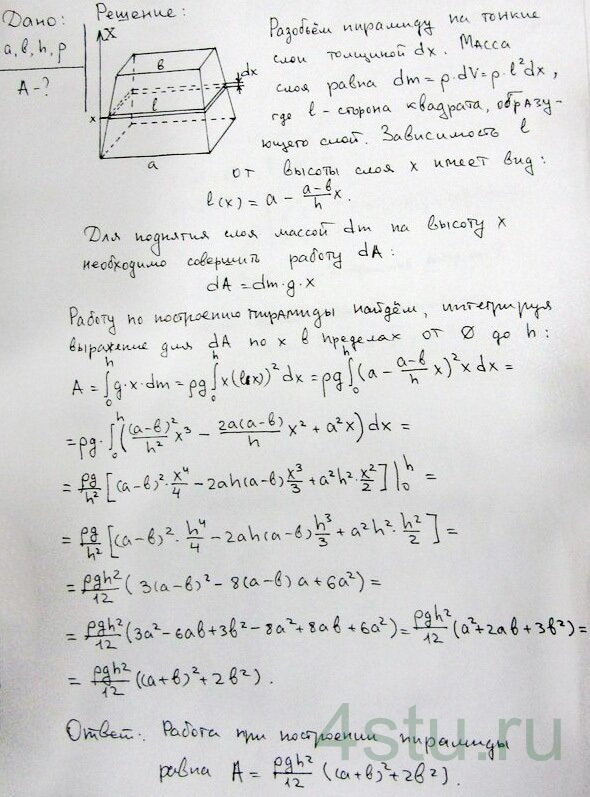 Дано:
a, b, h, ρ
A-?
Решение:
X
b
dx
x
l
a
Разобьём пирамиду на тонкие
слои толщиной dx. Масса
слоя равна dm = ρ·dV = ρ·l²dx,
где l - сторона квадрата, образу-
ющего слой. Зависимость l
от высоты слоя x имеет вид:
l(x) = a - (a-b)/h x.
Для поднятия слоя массой dm на высоту x
необходимо совершить работу dA:
dA = dm·g·x
Работу по построению пирамиды найдём, интегрируя
выражение для dA по x в пределах от 0 до h:
A = ∫₀ʰ g·x·dm = ρg ∫₀ʰ x(l(x))² dx = ρg ∫₀ʰ (a - (a-b)/h x)² x dx =
= ρg·∫₀ʰ ((a-b)²/h² x³ - 2a(a-b)/h x² + a²x) dx =
= ρg/h² [(a-b)²·x⁴/4 - 2ah(a-b) x³/3 + a²h²·x²/2] |₀ʰ =
= ρg/h² [(a-b)²·h⁴/4 - 2ah(a-b) h³/3 + a²h²·h²/2] =
= ρgh²/12 (3(a-b)² - 8(a-b)a + 6a²) =
= ρgh²/12 (3a² - 6ab + 3b² - 8a² + 8ab + 6a²) = ρgh²/12 (a² + 2ab + 3b²) =
= ρgh²/12 ((a+b)² + 2b²).
Ответ: Работа при построении пирамиды
равна A = ρgh²/12 ((a+b)² + 2b²).
4stu.ru